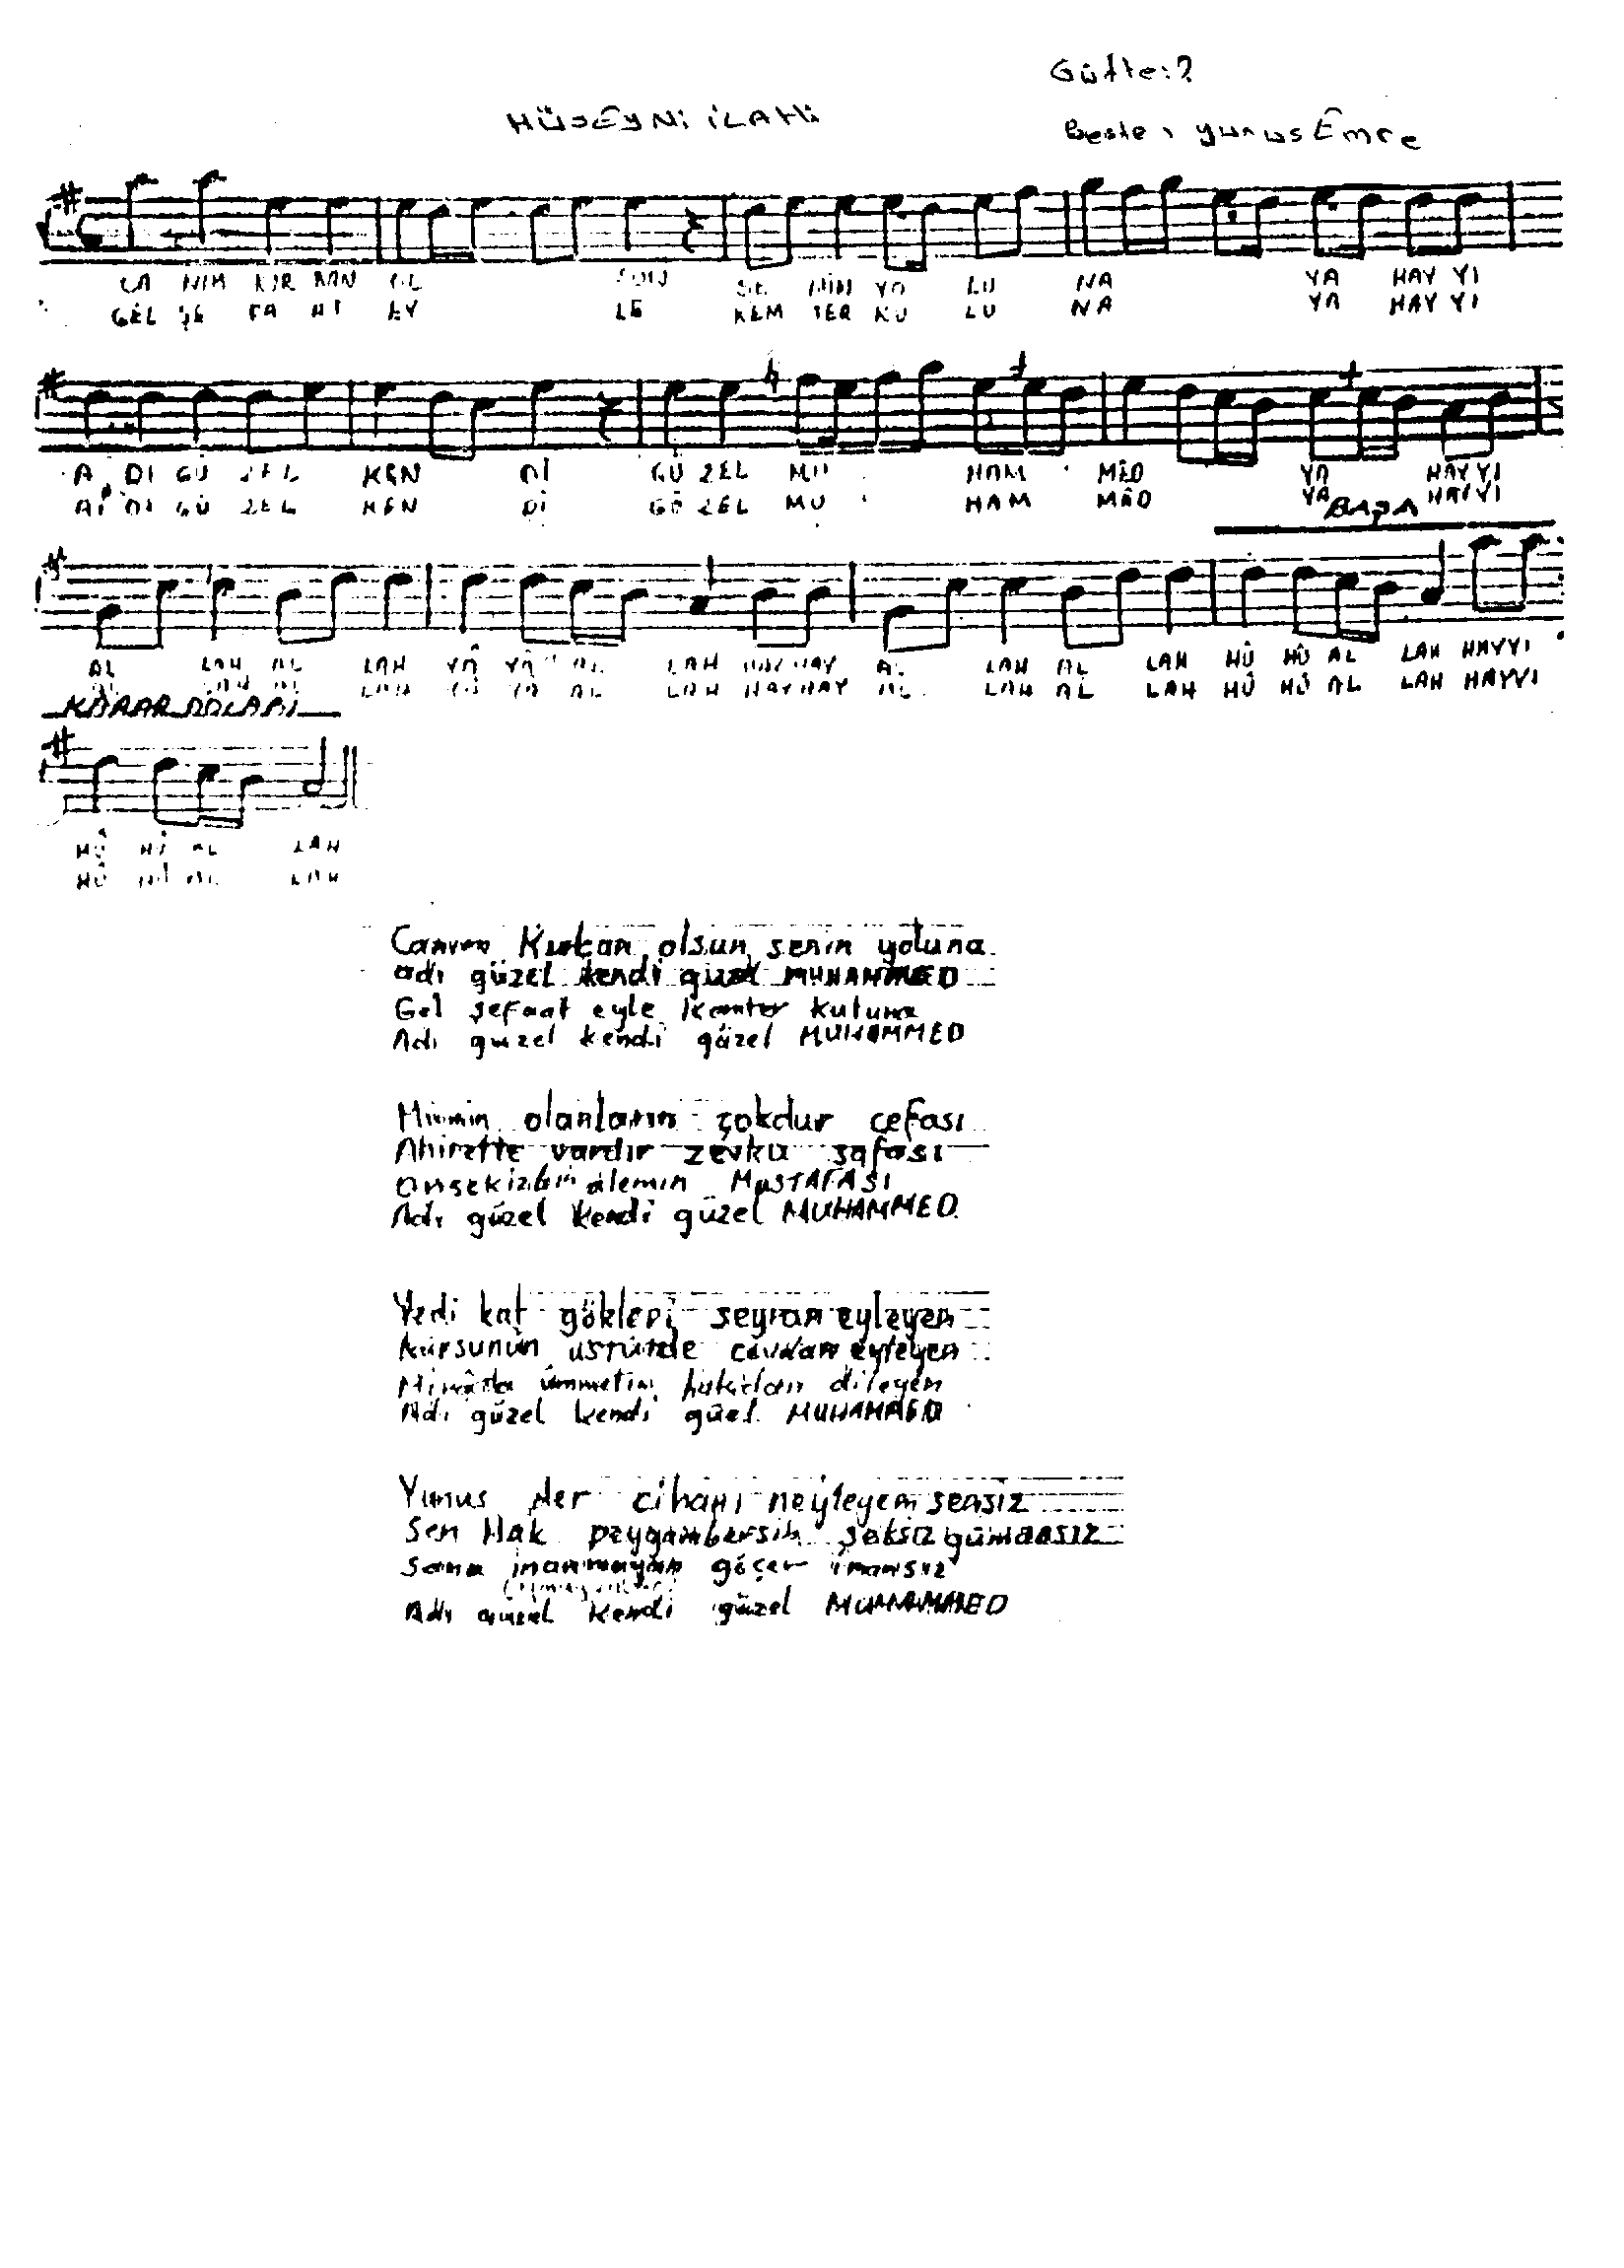 Güfte:?
HÜSEYNİ İLAHİ
Beste: Yunus Emre
CA NIM KUR BAN OL SUN SE NİN YO LU NA YA HAY YI
GEL ŞE FA AT EY LE KEM TER KU LU NA YA HAY YI
A DI GÜ ZEL KEN Dİ GÜ ZEL MU HAM MED YA HAY YI
A DI GÜ ZEL KEN Dİ GÜ ZEL MU HAM MED YA HAY YI
BAŞA
AL LAH AL LAH YÂ YÂ AL LAH HAY HAY AL LAH AL LAH HÛ HÛ AL LAH HAYYI
AL LAH AL LAH YÂ YA AL LAH HAY HAY AL LAH AL LAH HÛ HÛ AL LAH HAYYI
KARAR DOLABI
HÛ HÛ AL LAH
HÛ HÛ AL LAH
Canım Kurban olsun senin yoluna
adı güzel kendi güzel MUHAMMED
Gel şefaat eyle kemter kuluna
Adı güzel kendi güzel MUHAMMED
Mümin olanların çokdur cefası
Ahirette vardır zevku safası
onsekizbin âlemin MUSTAFASI
Adı güzel kendi güzel MUHAMMED
Yedi kat gökleri seyran eyleyen
kürsunün üstünde cevlan eyleyen
Mirâcda ümmetin hakdan dileyen
Adı güzel kendi güzel MUHAMMED
Yunus Ner cihanı neyleyem sensiz
Sen Hak peygambersin şeksiz gümansız
sana inanmayan göçer imansız
Adı güzel kendi güzel MUHAMMED